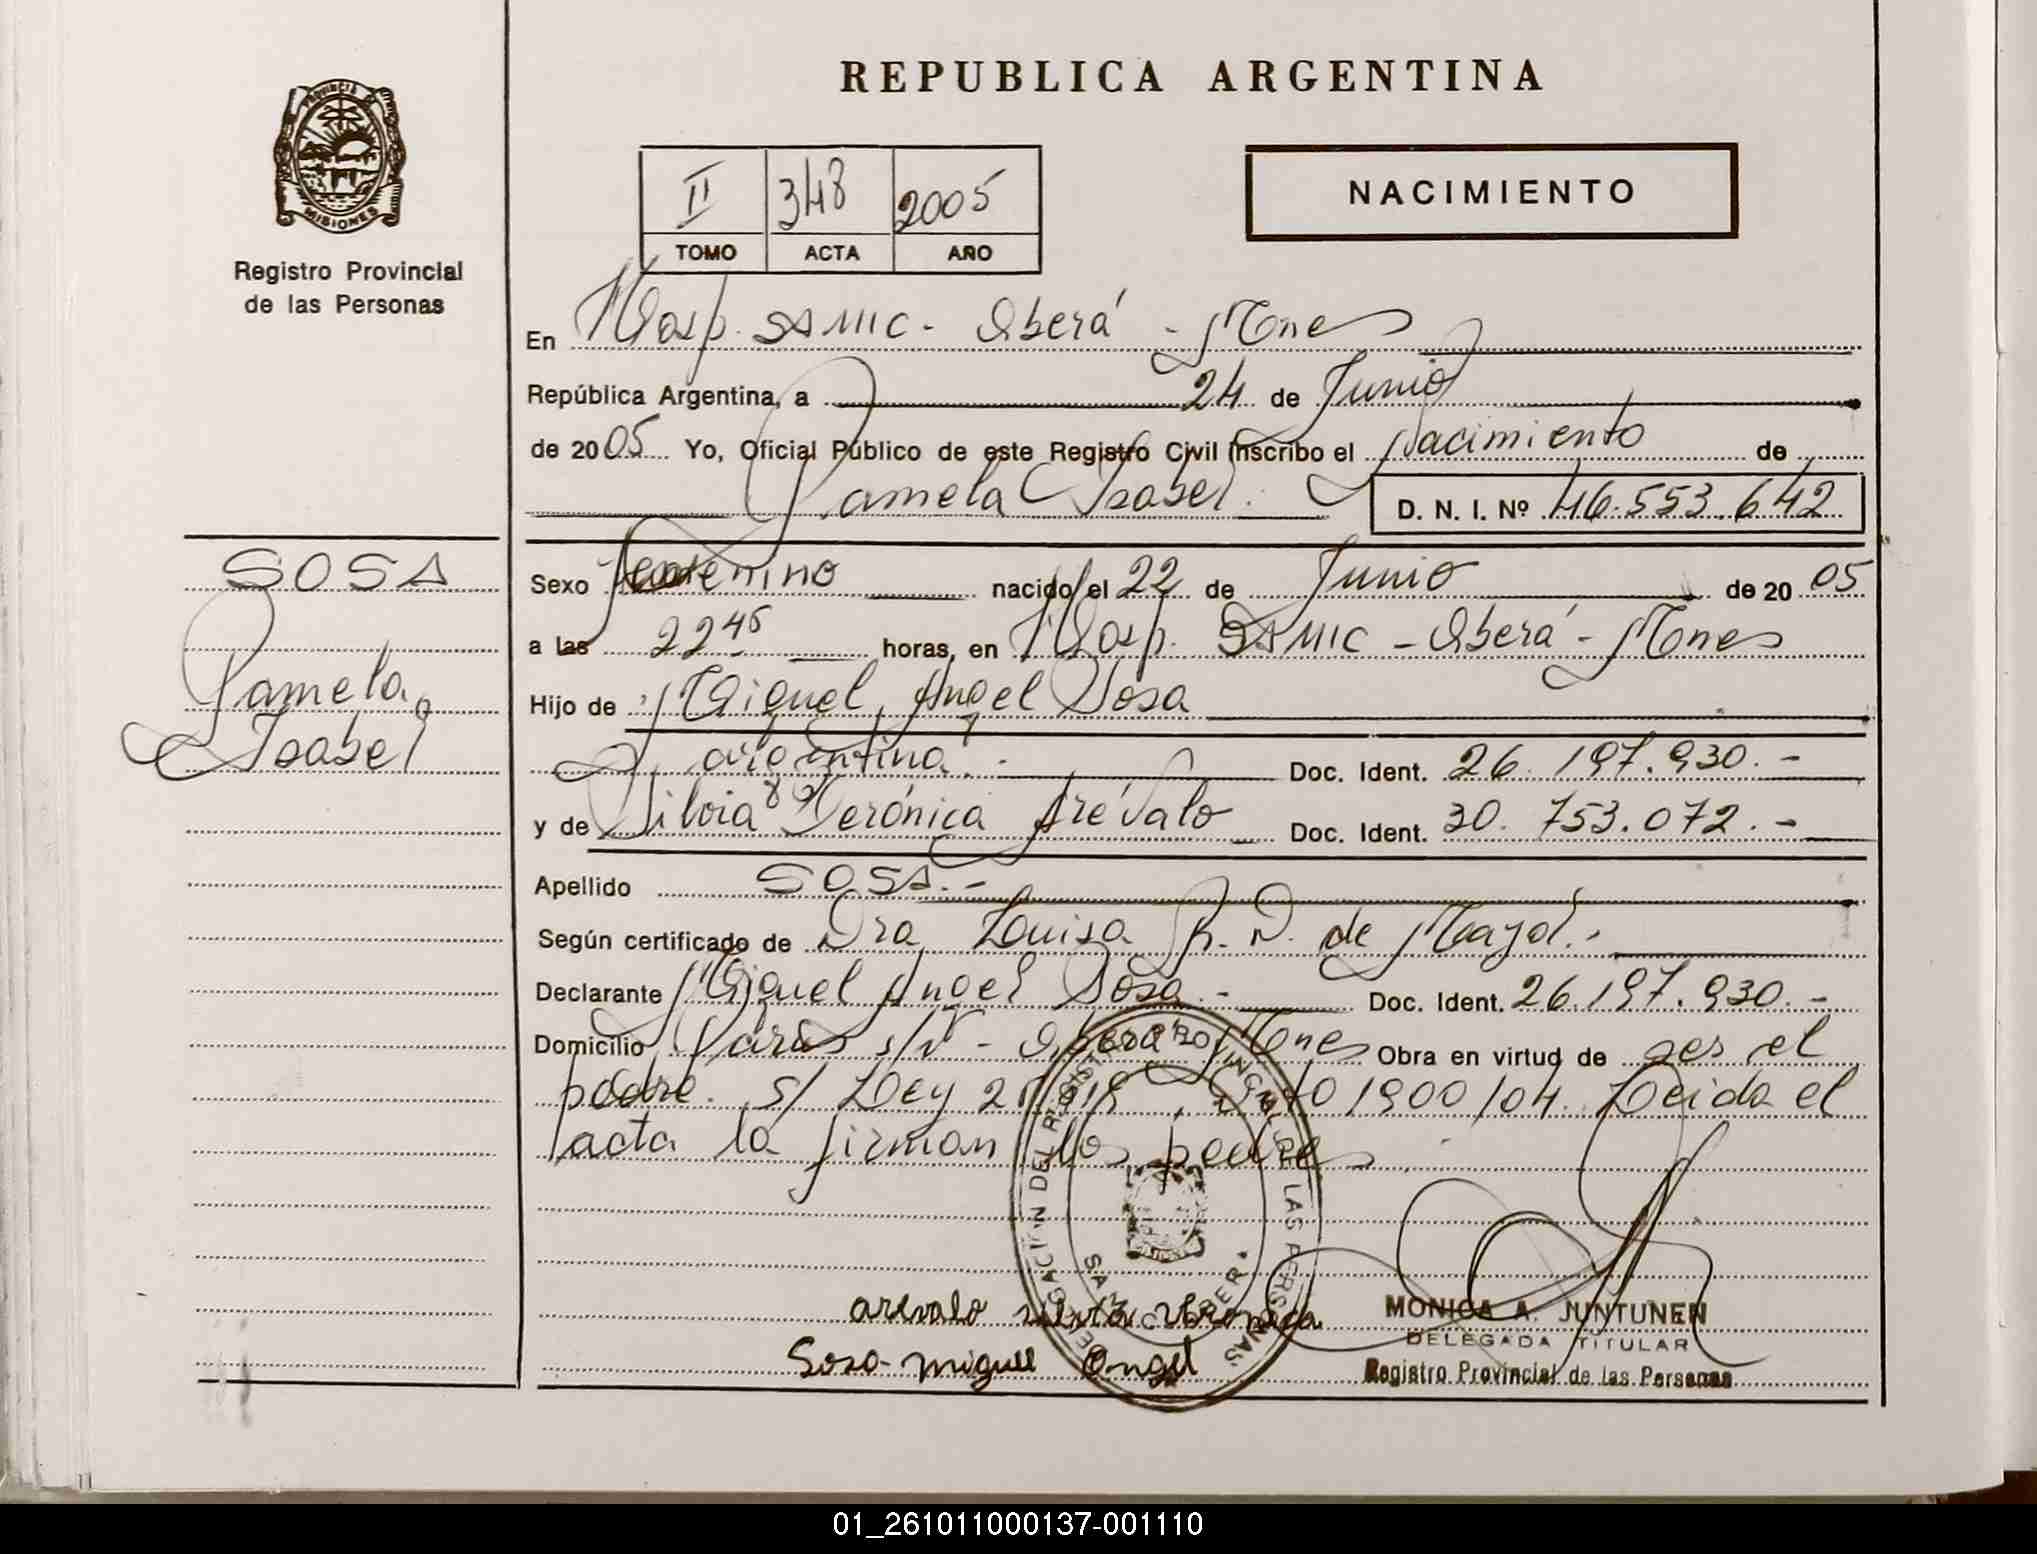 REPUBLICA ARGENTINA
PROVINCIA DE
MISIONES
Registro Provincial
de las Personas
II 348 2005
TOMO ACTA AÑO
NACIMIENTO
En Hosp. SAMIC - Oberá - Mnes
República Argentina, a 24 de Junio
de 2005 Yo, Oficial Público de este Registro Civil inscribo el Nacimiento de
Pamela Isabel. D. N. I. Nº 46.553.642
SOSA
Pamela
Isabel
Sexo Femenino nacido el 22 de Junio de 2005
a las 22 45 horas, en Hosp. SAMIC - Oberá - Mnes
Hijo de Miguel Angel Sosa
argentina. - Doc. Ident. 26.197.930. -
y de Silvia Verónica Arévalo Doc. Ident. 30.753.072. -
Apellido SOSA. -
Según certificado de Dra Louisa R. D. de Mayol. -
Declarante Miguel Angel Sosa. - Doc. Ident. 26.197.930. -
Domicilio s/N - Oberá Mnes Obra en virtud de ser el
padre. S/ Ley 1900/04. Leida el
acta la firman los padres
DELEGACION DEL REGISTRO PROVINCIAL DE LAS PERSONAS
arevalo silvia veronica
Sosa miguel Angel
MONICA A. JUNTUNEN
DELEGADA TITULAR
Registro Provincial de las Personas
01_261011000137-001110